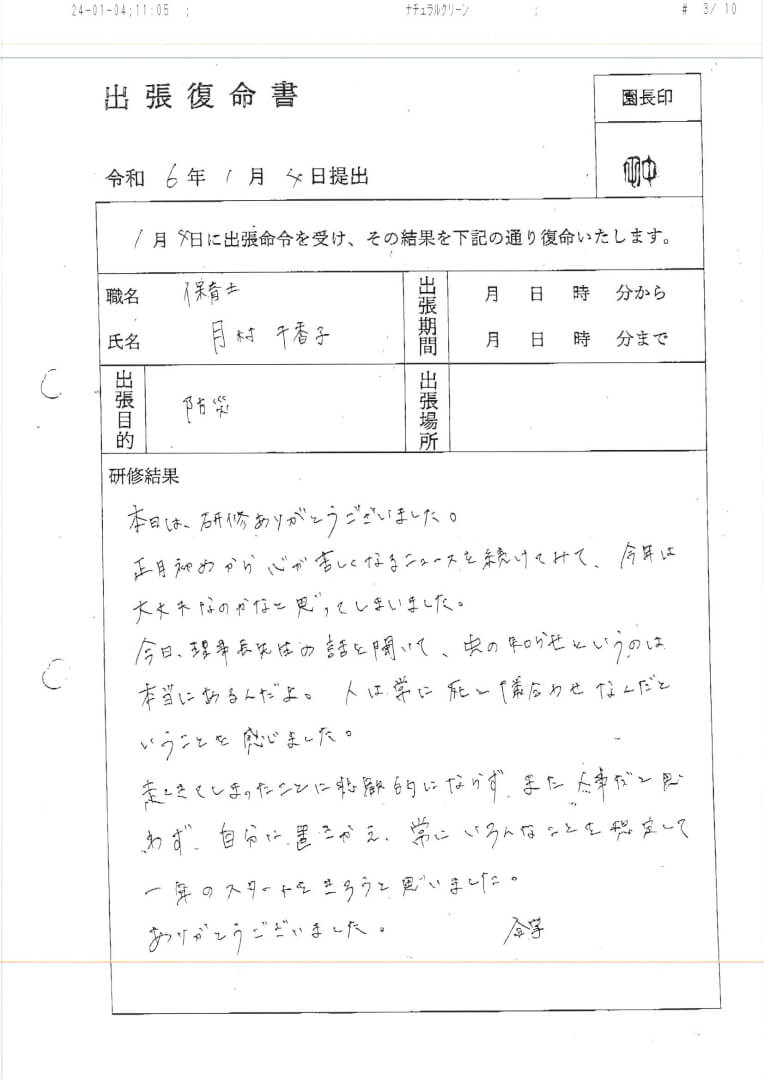 24-01-04;11:05 ; ナチュラルクリーン ; # 3/ 10
出張復命書
園長印
令和 6年 1月 4日提出
1月4日に出張命令を受け、その結果を下記の通り復命いたします。
職名 保育士
氏名 月村 千香子
出張期間
月 日 時 分から
月 日 時 分まで
出張目的
防災
出張場所
研修結果
本日は、研修ありがとうございました。
正月初めから心が苦しくなるニュースを続けてみて、今年は
大丈夫なのかなと思ってしまいました。
今日、理事長先生の話を聞いて、虫の知らせというのは
本当にあるんだよ。人は常に死と隣合わせなんだと
いうことを感じました。
起きてしまったことに悲観的にならず、また 事だと思
わず、自分に置きかえ、常にいろんなことを想定して
一年のスタートをきろうと思いました。
ありがとうございました。